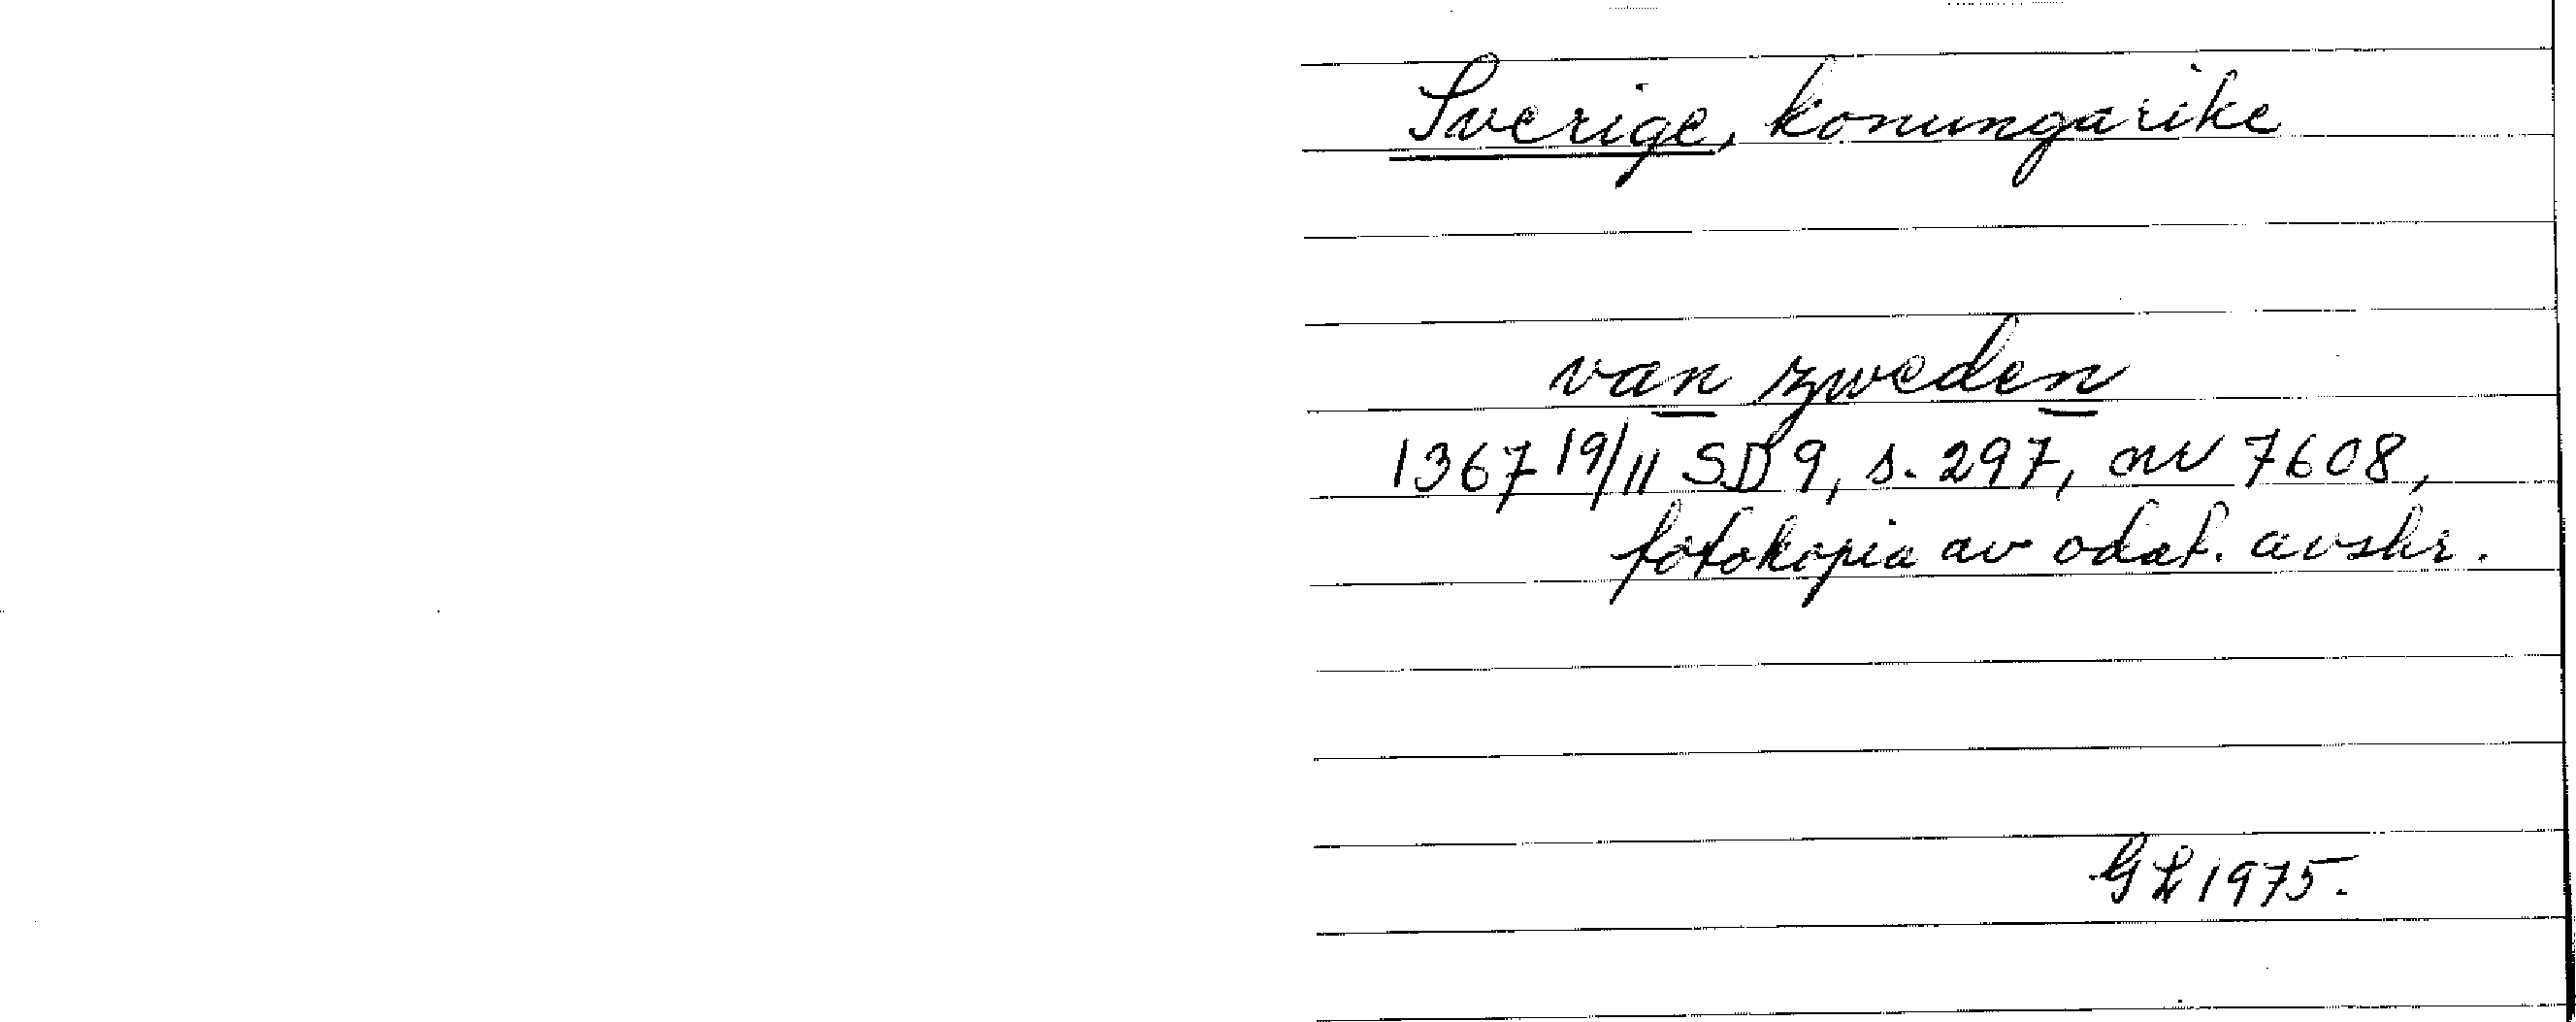 Sverige, konungarike
van zweden
1367 19/11 SD 9, s. 297, nr 7608,
fotokopia av odat. avskr.
GL 1975.